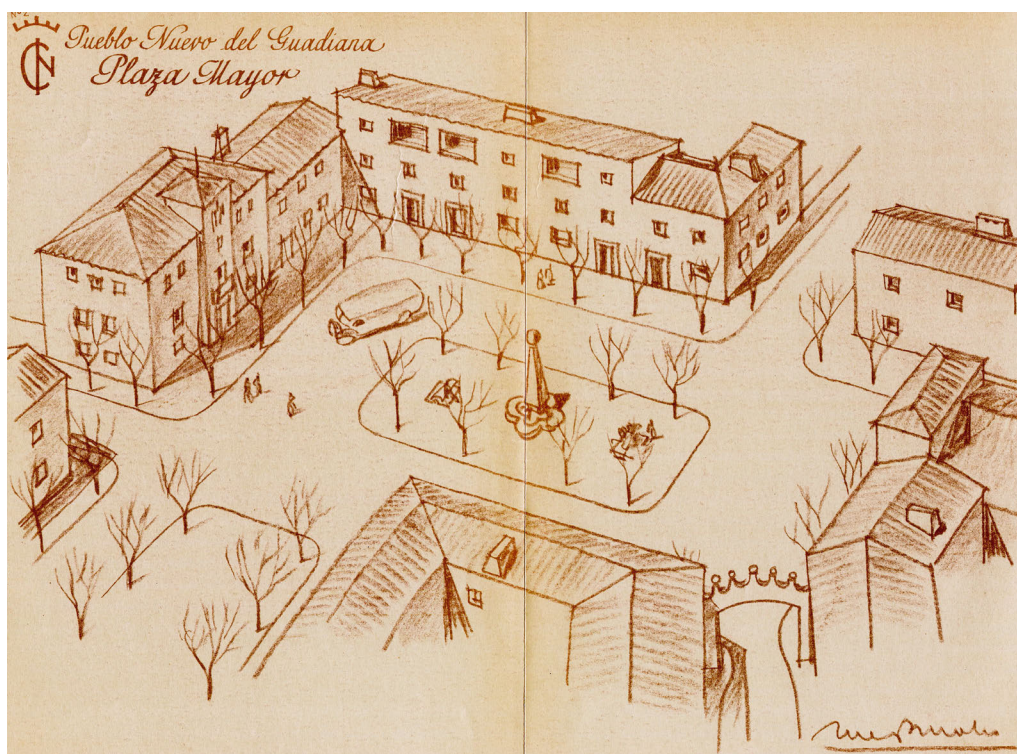 Nº2
Pueblo Nuevo del Guadiana
Plaza Mayor